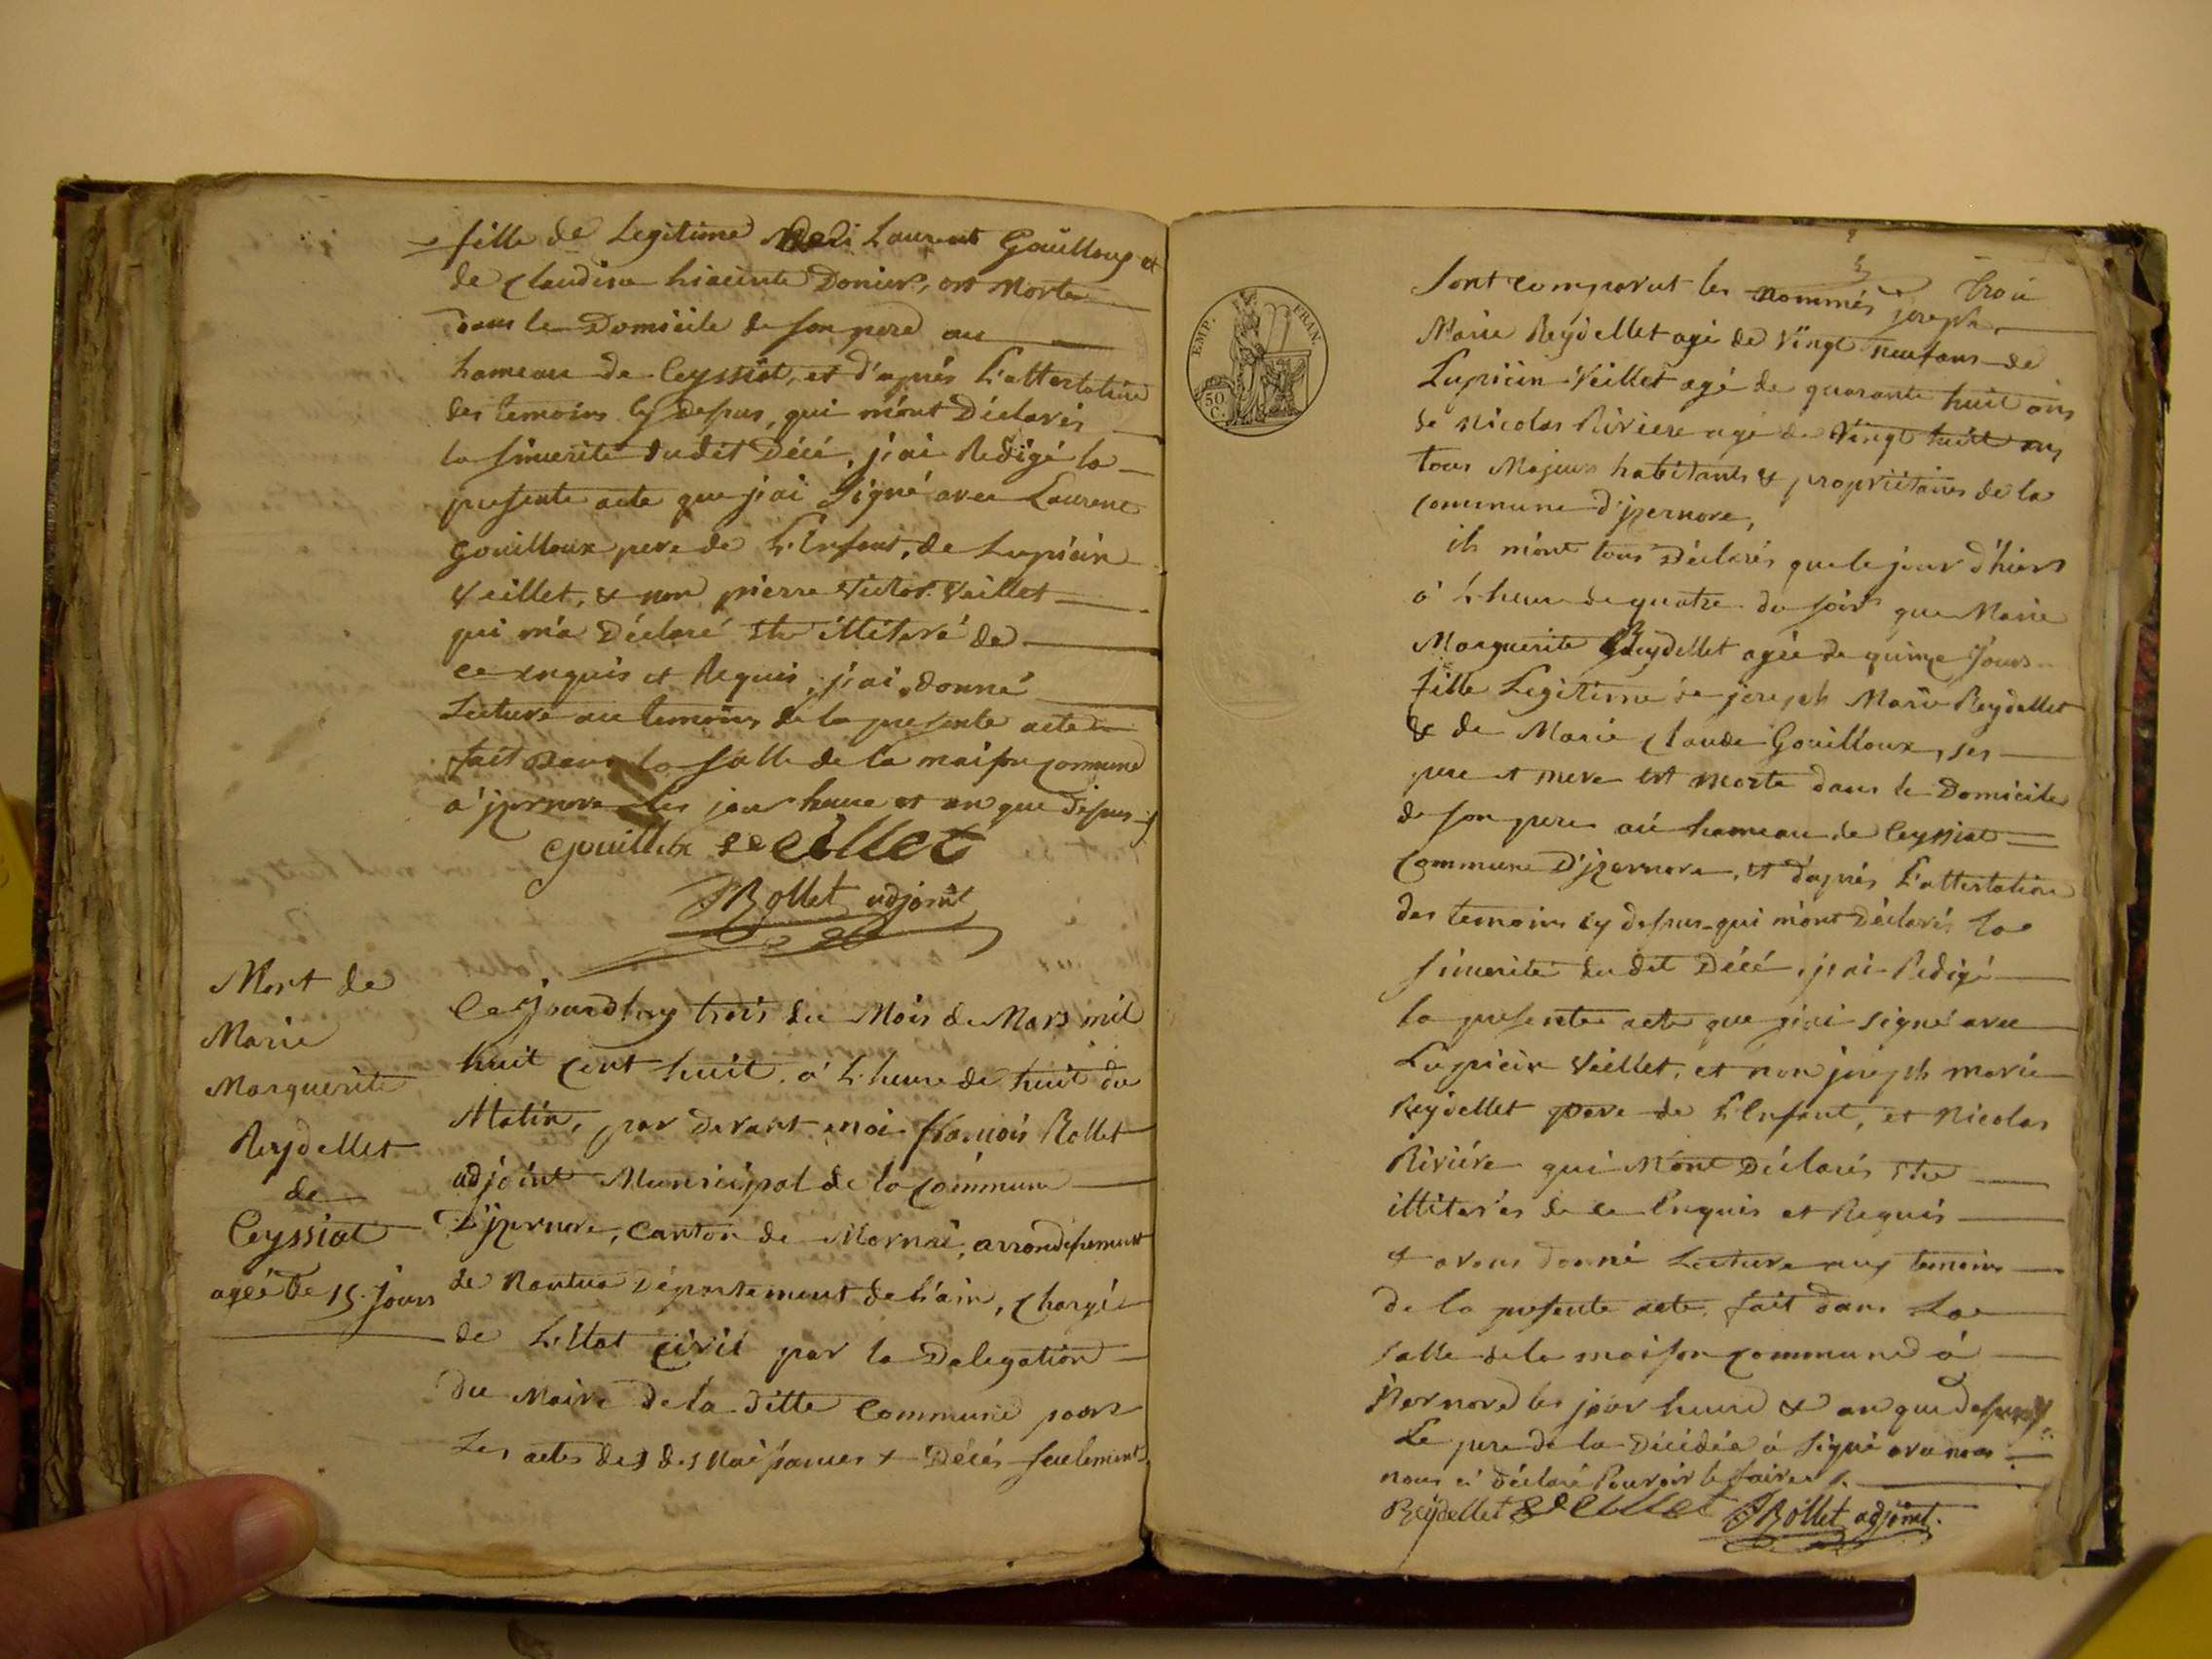 fille de Legitime de Laurent Gouilloux et
de Claudine hiacinte Donier, est Morte
dans le Domicile de son pere au
hameau de Ceyssiat, et d'après L'attestation
des temoins cy dessus, qui m'ont Déclarés
la sincerité dudit Décé, j'ai Redigé la
presente acte que j'ai Signé avec Laurent
Gouilloux pere de L'Enfant, de Lupicin
Veillet, & non pierre Victor Veillet
qui m'a Déclaré etre illiteré de
ce enquis et Requis, j'ai donné
Lecture au temoins de la presente acte
fait dans la salle de la maison commune
a jzernore les jour heure et an que dessus
Gouilloux Veillet
fRollet adjoint
Mort de
Marie
Marguerite
Reydellet
de
Ceyssiat
agée de 15 Jours
Ce jourdhuy trois du Mois de Mars mil
huit Cent huit, a L'heure de huit du
Matin, par devant moi françois Rollet
adjoint Municipal de la Commune
D'jzernore, Canton de Mornai, arrondissement
de Nantua Département de l'ain, Chargé
de L'Etat Civil par la Delegation
du Maire de la ditte Commune pour
Les actes des des Naissances & Décés seulement,
trois
EMP. FRAN.
50 C.
Sont comparut les nommés joseph
Marie Reydellet agé de Vingt neuf ans de
Lupicin Veillet agé de quarante huit ans
de Nicolas Riviere agé de Vingt huit ans
tous Majeurs habitants & propriétaires de la
commune d'jzernore,
ils m'ont tous Déclarés que le jour d'hiers
a L'heure de quatre du soir que Marie
Marguerite Reydellet agée de quinze Jours
fille Legitime de joseph Marie Reydellet
& de Marie Claude Gouilloux, ses
pere et mere est morte dans le Domicile
de son pere au hameau de Ceyssiat
Commune D'jzernore, et d'après L'attestation
des temoins cy dessus qui m'ont déclarés la
sincerité du dit Décé, j'ai Redigé
la presente acte que j'ai signé avec
Lupicin Veillet, et non joseph marie
Reydellet pere de L'Enfant, et Nicolas
Riviére qui M'ont Déclarés etre
illiterés de ce Enquis et Requis
& avons donné Lecture aux temoins
de la presente acte, fait dans La
salle de la maison commune à
jzernore les jour heure & an que dessus
Le pere de la Décédée à signé avec nous
nous à déclaré Pouvoir le faire
Reydellet Veillet fRollet adjoint.